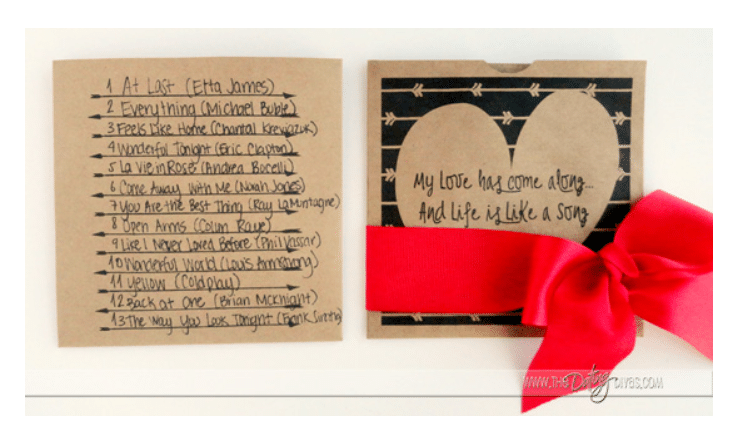 1 At Last (Etta James)
2 Everything (Michael Buble)
3 Feels Like Home (Chantal Kreviazuk)
4 Wonderful Tonight (Eric Clapton)
5 La Vie in Rose (Andrea Bocelli)
6 Come Away With Me (Norah Jones)
7 You Are the Best Thing (Ray LaMontagne)
8 Open Arms (Colum Raye)
9 Like I Never Loved Before (Phil Vassar)
10 Wonderful World (Louis Armstrong)
11 Yellow (Coldplay)
12 Back at One (Brian McKnight)
13 The Way You Look Tonight (Frank Sinatra)
My Love has come along...
And Life is Like a Song
WWW.THE Dating DIVAS.COM